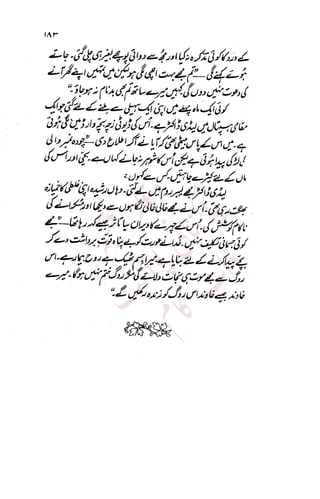 ۱۸۳
کے درد کا کوئی تذکرہ نہ کیا اور مجھ سے دوائی پوچھے بغیر ہی چلی گئی۔ جاتے
ہوئے کہنے لگی ــــ "تم مجھے بہت اچھی لگی ہو لیکن میں تمہیں اپنے گھر آنے
کی دعوت نہیں دوں گی کہیں میرے ساتھ تم بھی بدنام نہ ہو جاؤ۔"
کوئی ایک ماہ پہلے میں اپنی ایک سہیلی سے ملنے کے لئے گئی جو ایک
مقامی ہسپتال میں لیڈی ڈاکٹر ہے۔ اُس کی ڈیوٹی زچہ بچہ وارڈ میں لگی ہوئی
ہے۔ میں اس کے پاس بیٹھی تھی کہ آیا نے آ کر اطلاع دی ــــ "چودہ نمبر والی
کی لڑکی پیدا ہوئی ہے لیکن اُس کا شوہر نہ جانے کہاں ہے۔ بچی اور اس کی
ماں کے لئے کپڑے چاہئیں، کس سے کہوں؟"
لیڈی ڈاکٹر مجھے لیبر روم میں لے گئی۔ وہاں رشیدہ اپنی غلطی کا خمیازہ
بھگت رہی تھی۔ اُس نے مجھے خالی خالی نگاہوں سے دیکھا اور مسکرانے کی
ناکام کوشش کی۔ اُس کے چہرے کا ویران سا تاثر جیسے کہہ رہا تھا ــــ "مجھے
کوئی جسمانی تکلیف نہیں۔ خدا نے عورت کو بے پناہ قوتِ برداشت دے کر
بچے پیدا کرنے کے لئے بنایا ہے، میرا جسم ٹھیک ہے روح بیمار ہے۔ اس
روگ سے مجھے موت ہی نجات دلائے گی مگر روگ ختم نہیں ہو گا۔ میرے
خاوند جیسے خاوند اس روگ کو زندہ رکھیں گے۔"